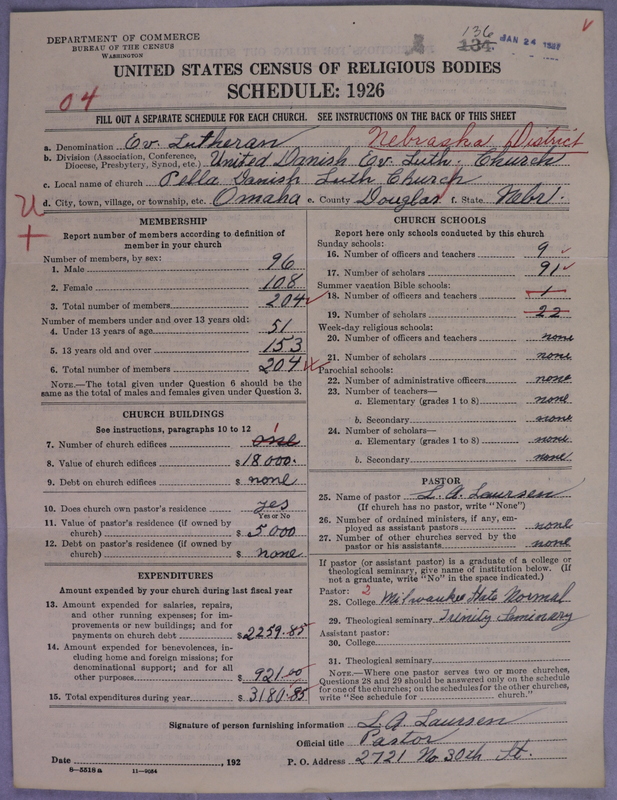 DEPARTMENT OF COMMERCE
BUREAU OF THE CENSUS
WASHINGTON
136
134
JAN 24
UNITED STATES CENSUS OF RELIGIOUS BODIES
SCHEDULE: 1926
04
FILL OUT A SEPARATE SCHEDULE FOR EACH CHURCH. SEE INSTRUCTIONS ON THE BACK OF THIS SHEET
a. Denomination Ev. Lutheran Nebraska District
b. Division (Association, Conference, Diocese, Presbytery, Synod, etc.) United Danish Ev. Luth. Church
c. Local name of church Pella Danish Luth Church
d. City, town, village, or township, etc. Omaha e. County Douglas f. State Nebr.
MEMBERSHIP
Report number of members according to definition of member in your church
Number of members, by sex:
1. Male 96
2. Female 108
3. Total number of members 204
Number of members under and over 13 years old:
4. Under 13 years of age 51
5. 13 years old and over 153
6. Total number of members 204
NOTE.—The total given under Question 6 should be the same as the total of males and females given under Question 3.
CHURCH BUILDINGS
See instructions, paragraphs 10 to 12
7. Number of church edifices one 1
8. Value of church edifices $18000.
9. Debt on church edifices $ none
10. Does church own pastor's residence yes
Yes or No
11. Value of pastor's residence (if owned by church) $ 5000
12. Debt on pastor's residence (if owned by church) $ none
EXPENDITURES
Amount expended by your church during last fiscal year
13. Amount expended for salaries, repairs, and other running expenses; for improvements or new buildings; and for payments on church debt $2259.85
14. Amount expended for benevolences, including home and foreign missions; for denominational support; and for all other purposes $ 921.00
15. Total expenditures during year $3180.85
CHURCH SCHOOLS
Report here only schools conducted by this church
Sunday schools:
16. Number of officers and teachers 9
17. Number of scholars 91
Summer vacation Bible schools:
18. Number of officers and teachers 1
19. Number of scholars 22
Week-day religious schools:
20. Number of officers and teachers none
21. Number of scholars none
Parochial schools:
22. Number of administrative officers none
23. Number of teachers—
a. Elementary (grades 1 to 8) none
b. Secondary none
24. Number of scholars—
a. Elementary (grades 1 to 8) none
b. Secondary none
PASTOR
25. Name of pastor L. A. Laursen
(If church has no pastor, write "None")
26. Number of ordained ministers, if any, employed as assistant pastors none
27. Number of other churches served by the pastor or his assistants none
If pastor (or assistant pastor) is a graduate of a college or theological seminary, give name of institution below. (If not a graduate, write "No" in the space indicated.)
Pastor: 2
28. College Milwaukee State Normal
29. Theological seminary Trinity Seminary
Assistant pastor:
30. College
31. Theological seminary
NOTE.—Where one pastor serves two or more churches, Questions 28 and 29 should be answered only on the schedule for one of the churches; on the schedules for the other churches, write "See schedule for church."
Signature of person furnishing information L. A. Laursen
Official title Pastor
Date , 192 P. O. Address 2721 No. 30th St.
8—5518 a 11—9054